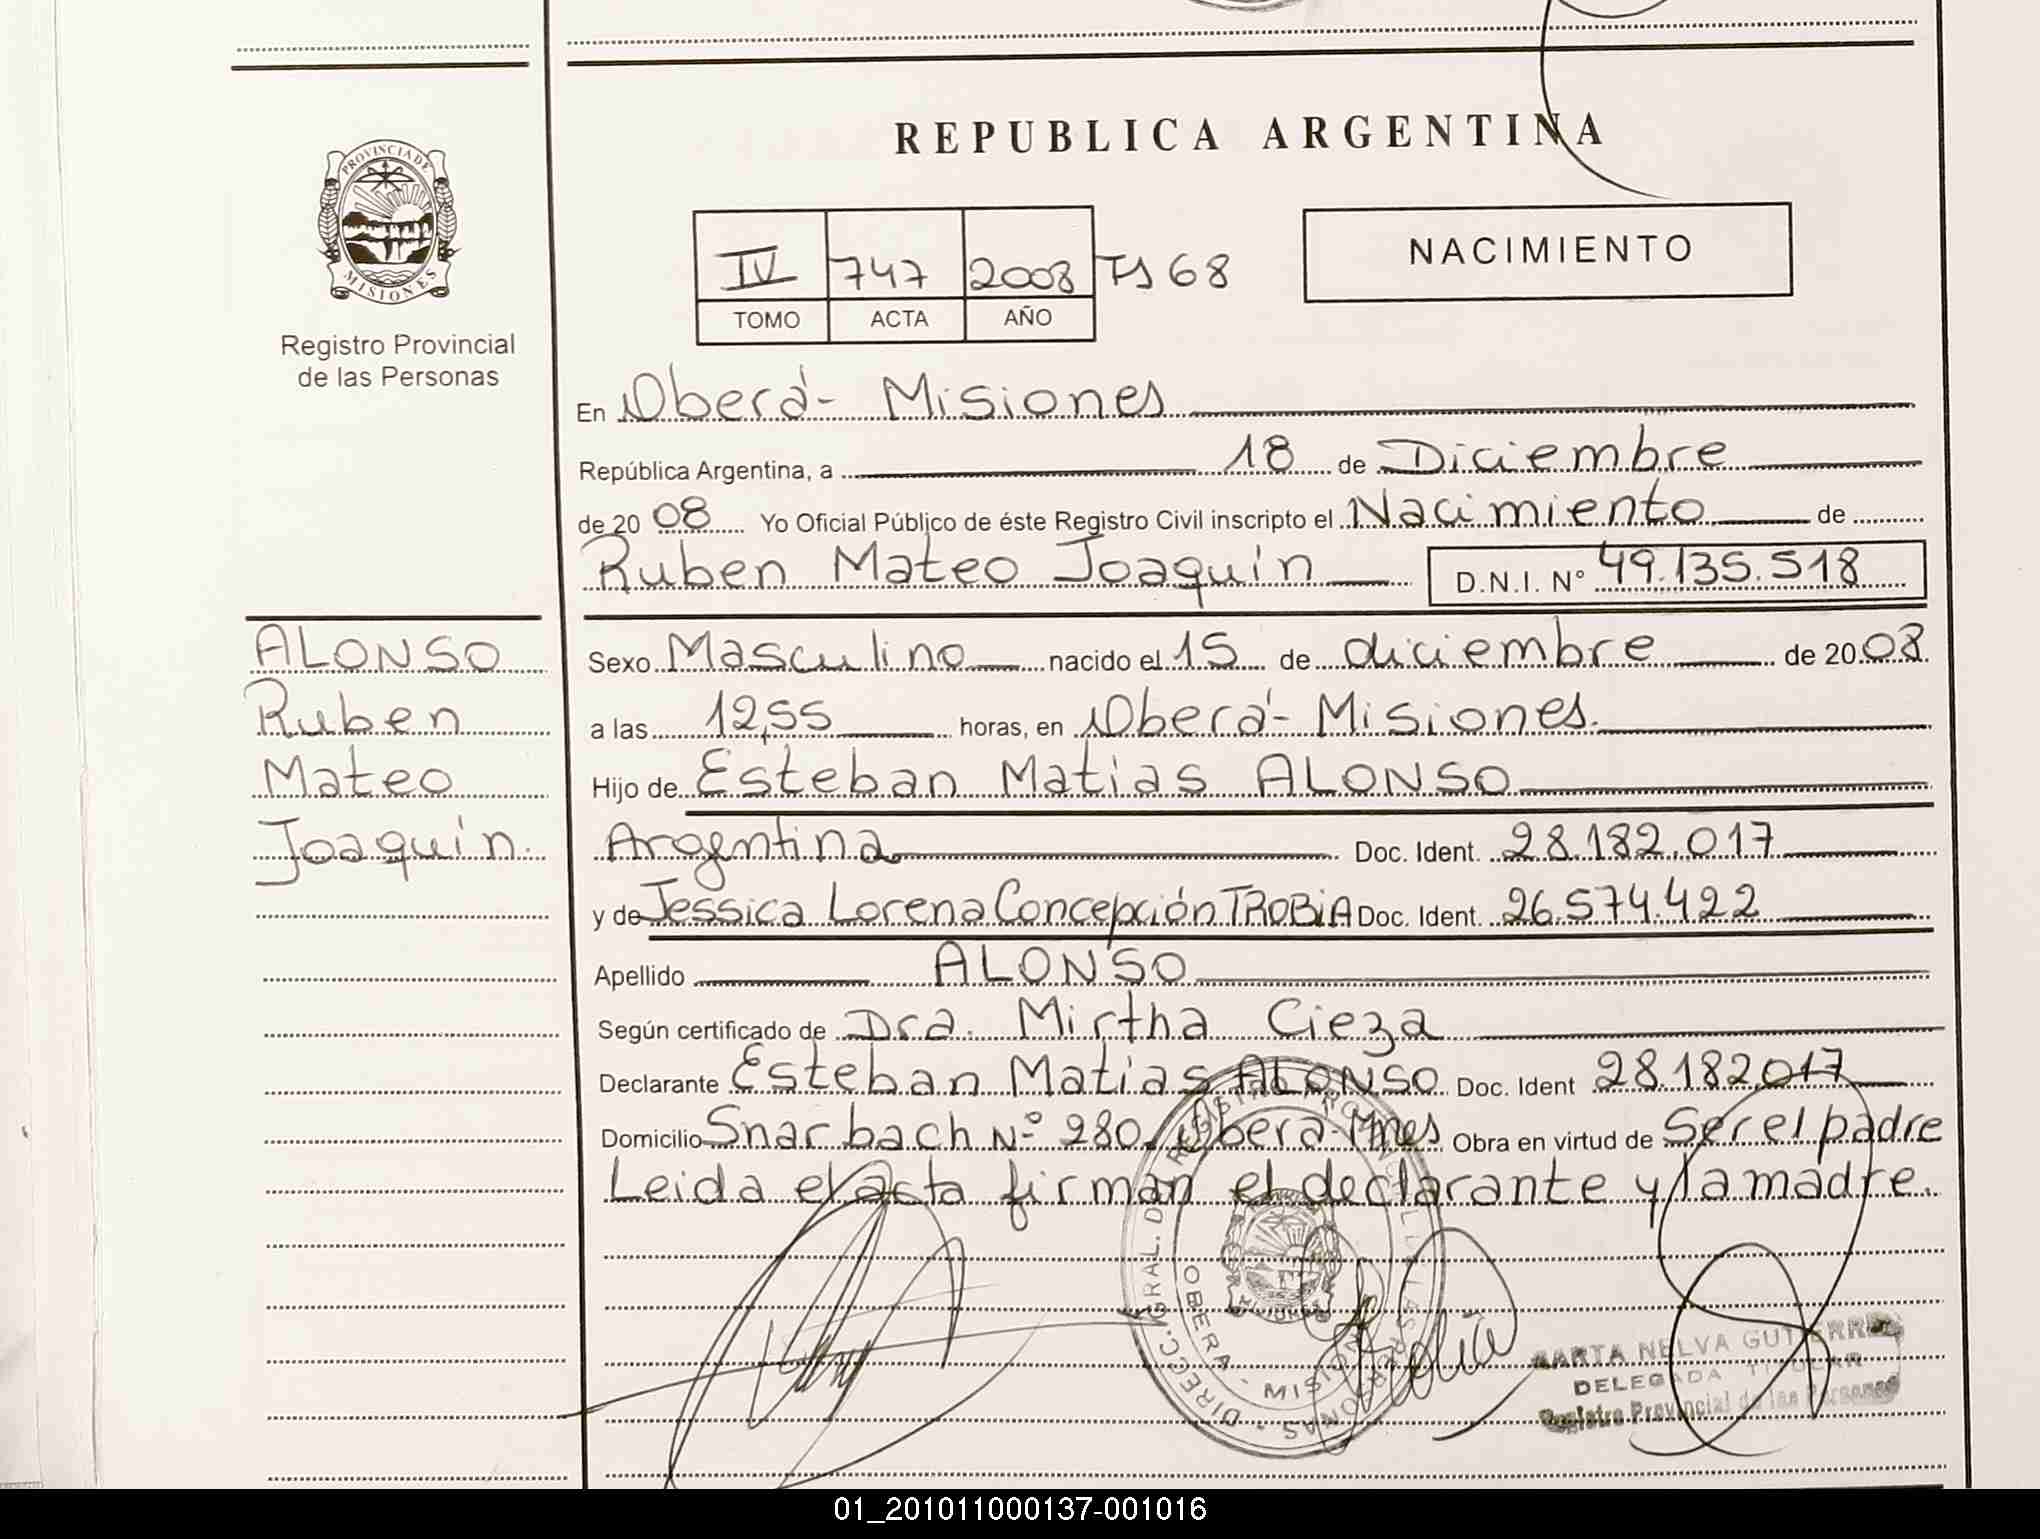 REPUBLICA ARGENTINA
PROVINCIA DE
MISIONES
Registro Provincial
de las Personas
IV 747 2008 Fs 68
TOMO ACTA AÑO
NACIMIENTO
En Oberá- Misiones
República Argentina, a 18 de Diciembre
de 2008 Yo Oficial Público de éste Registro Civil inscripto el Nacimiento de
Ruben Mateo Joaquín D.N.I. N° 49.135.518
ALONSO
Ruben
Mateo
Joaquín.
Sexo Masculino nacido el 15 de diciembre de 2008
a las 12,55 horas, en Oberá- Misiones.
Hijo de Esteban Matias ALONSO
Argentina Doc. Ident. 28.182.017
y de Jessica Lorena Concepción TROBIA Doc. Ident. 26.574.422
Apellido ALONSO
Según certificado de Dra. Mirtha Cieza
Declarante Esteban Matias ALONSO Doc. Ident 28.182.017
Domicilio Snarbach N° 280. Oberá-Mnes Obra en virtud de Ser el padre
Leida el acta firman el declarante y la madre.
DIRECC. GRAL. DE REGISTRO PROVINCIAL DE LAS PERSONAS
OBERA - MISIONES
MARTA NELVA GUTIERREZ
DELEGADA TITULAR
Registro Provincial de las Personas
01_201011000137-001016